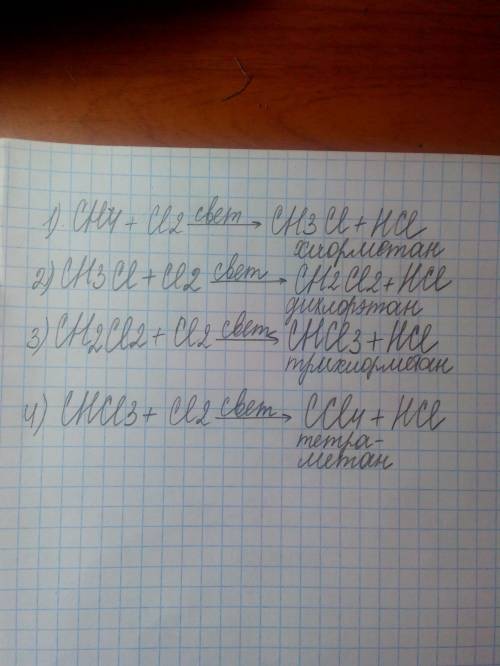 1) CH4 + Cl2 свет → CH3Cl + HCl
хлорметан
2) CH3Cl + Cl2 свет → CH2Cl2 + HCl
дихлорэтан
3) CH2Cl2 + Cl2 свет → CHCl3 + HCl
трихлорметан
4) CHCl3 + Cl2 свет → CCl4 + HCl
тетра-
метан